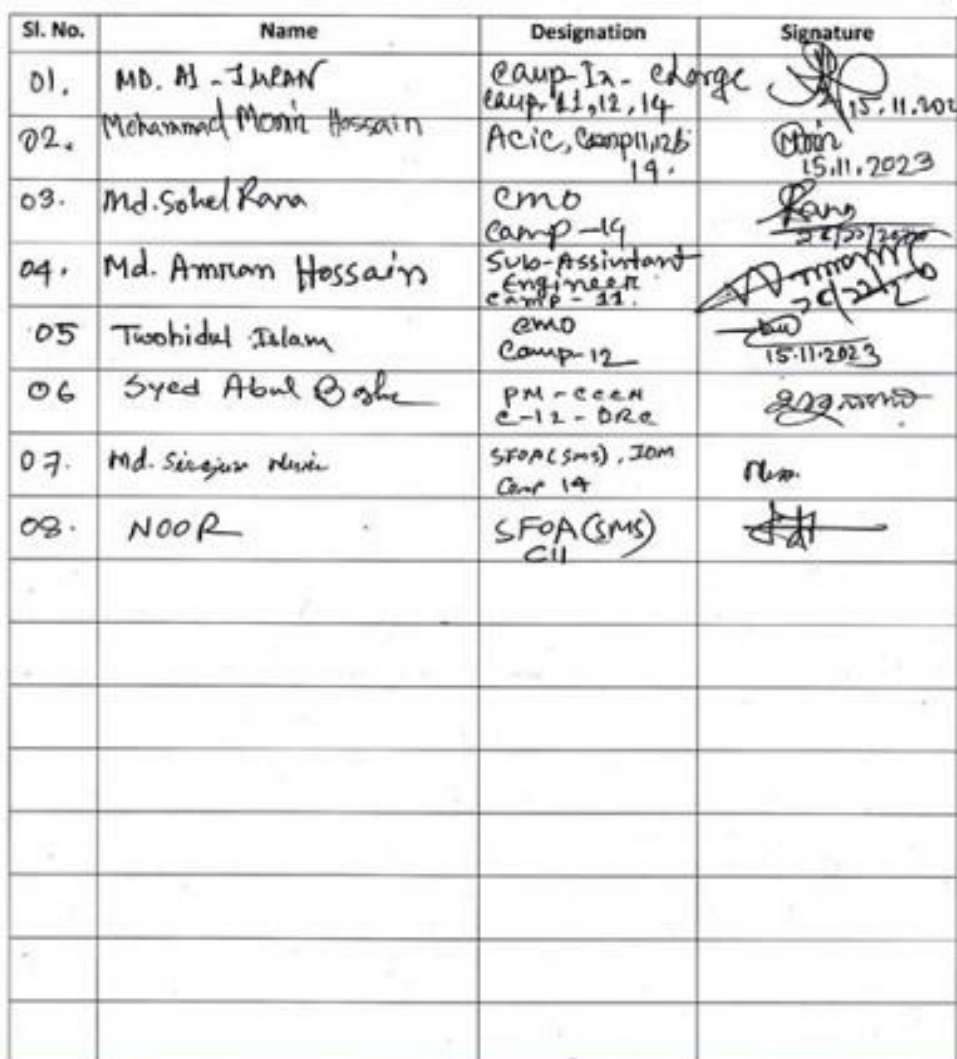 Sl. No. Name Designation Signature
01. MD. Al - Imran Camp-In-charge
Camp-11,12,14 15.11.202
02. Mohammad Monir Hossain ACiC, Camp11,12&
14. Monir
15.11.2023
03. Md. Sohel Rana CMO Rana
Camp-14
04. Md. Amran Hossain Sub-Assistant
Engineer
Camp - 11.
05 Twohidul Islam CMO
Camp-12 15.11.2023
06 Syed Abul
PM - CCCM
C-12 - DRC
07. Md. SFOA(SMS), IOM
Camp 14
08. NOOR SFOA(SMS)
C11